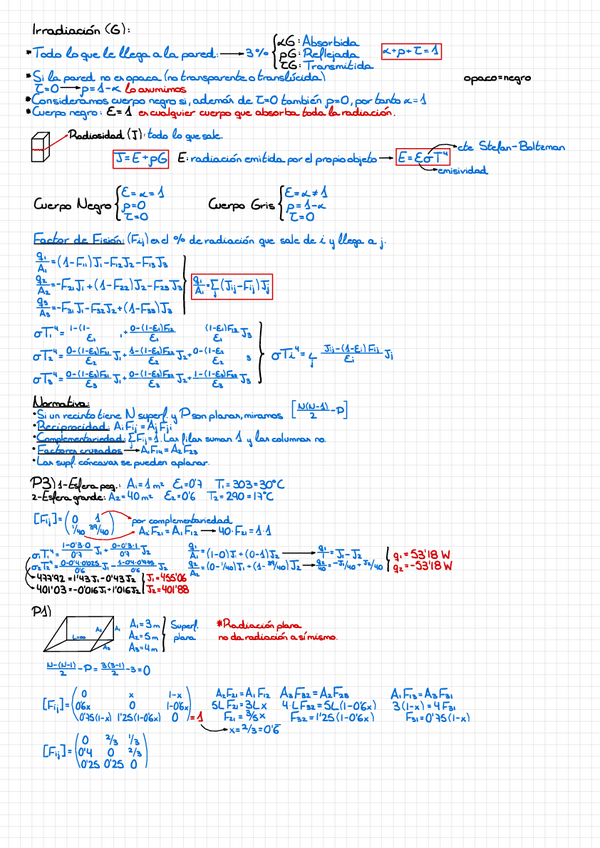 Irradiación (G):
*Todo lo que le llega a la pared: → 3% { αG: Absorbida
ρG: Reflejada
τG: Transmitida
α+ρ+τ=1
*Si la pared no es opaca (no transparente o translúcida)
opaco=negro
τ=0 → ρ=1-α lo asumimos
*Consideramos cuerpo negro si, además de τ=0 también ρ=0, por tanto α=1
*Cuerpo negro: ε=1 es cualquier cuerpo que absorba toda la radiación.
Radiosidad (J): todo lo que sale.
J=E+ρG E: radiación emitida por el propio objeto → E=εσT⁴
cte Stefan-Boltzman
emisividad
Cuerpo Negro { ε=α=1
ρ=0
τ=0
Cuerpo Gris { ε=α≠1
ρ=1-α
τ=0
Factor de Fisión: (Fij) es el % de radiación que sale de i y llega a j.
q₁/A₁=(1-F₁₁)J₁-F₁₂J₂-F₁₃J₃
q₂/A₂=-F₂₁J₁+(1-F₂₂)J₂-F₂₃J₃
q₃/A₃=-F₃₁J₁-F₃₂J₂+(1-F₃₃)J₃
Normativa:
*Si un recinto tiene N superf. y P son planas, miramos [N(N-1)/2 -P]
*Reciprocidad: AiFij=AjFji
*Complementariedad: ΣFij=1. Las filas suman 1 y las columnas no.
*Factores cruzados → A₁F₁₄=A₂F₂₃
*Las supf. cóncavas se pueden aplanar.
P3) 1-Esfera peq.: A₁=1m² ε₁=0'7 T₁=303=30°C
2-Esfera grande: A₂=40m² ε₂=0'6 T₂=290=17°C
[Fij]=(0 1
1/40 39/40)
por complementariedad
A₂F₂₁=A₁F₁₂ → 40·F₂₁=1·1
σT₁⁴=(1-0'3·0)/0'7 J₁+(0-0'3·1)/0'7 J₂
q₁/A₁=(1-0)J₁+(0-1)J₂ → q₁/1=J₁-J₂
q₂/A₂=(0-1/40)J₁+(1-39/40)J₂ → q₂/40=-J₁/40+J₂/40
q₁=53'18 W
q₂=-53'18 W
477'92=1'43J₁-0'43J₂
J₁=455'06
401'03=-0'016J₁+1'016J₂
J₂=401'88
P1)
A₁=3m
A₂=5m
A₃=4m
Superf. plana
*Radiación plana no da radiación a sí misma.
N-(N-1)/2 -P=3(3-1)/2 -3=0
[Fij]=(0 x 1-x
0'6x 0 1-0'6x
0'75(1-x) 1'25(1-0'6x) 0)=1
A₂F₂₁=A₁F₁₂ A₃F₃₂=A₂F₂₃ A₁F₁₃=A₃F₃₁
5LF₂₁=3Lx 4·LF₃₂=5L(1-0'6x) 3(1-x)=4F₃₁
F₂₁=3/5x F₃₂=1'25(1-0'6x) F₃₁=0'75(1-x)
x=2/3=0'6
[Fij]=(0 2/3 1/3
0'4 0 2/3
0'25 0'25 0)